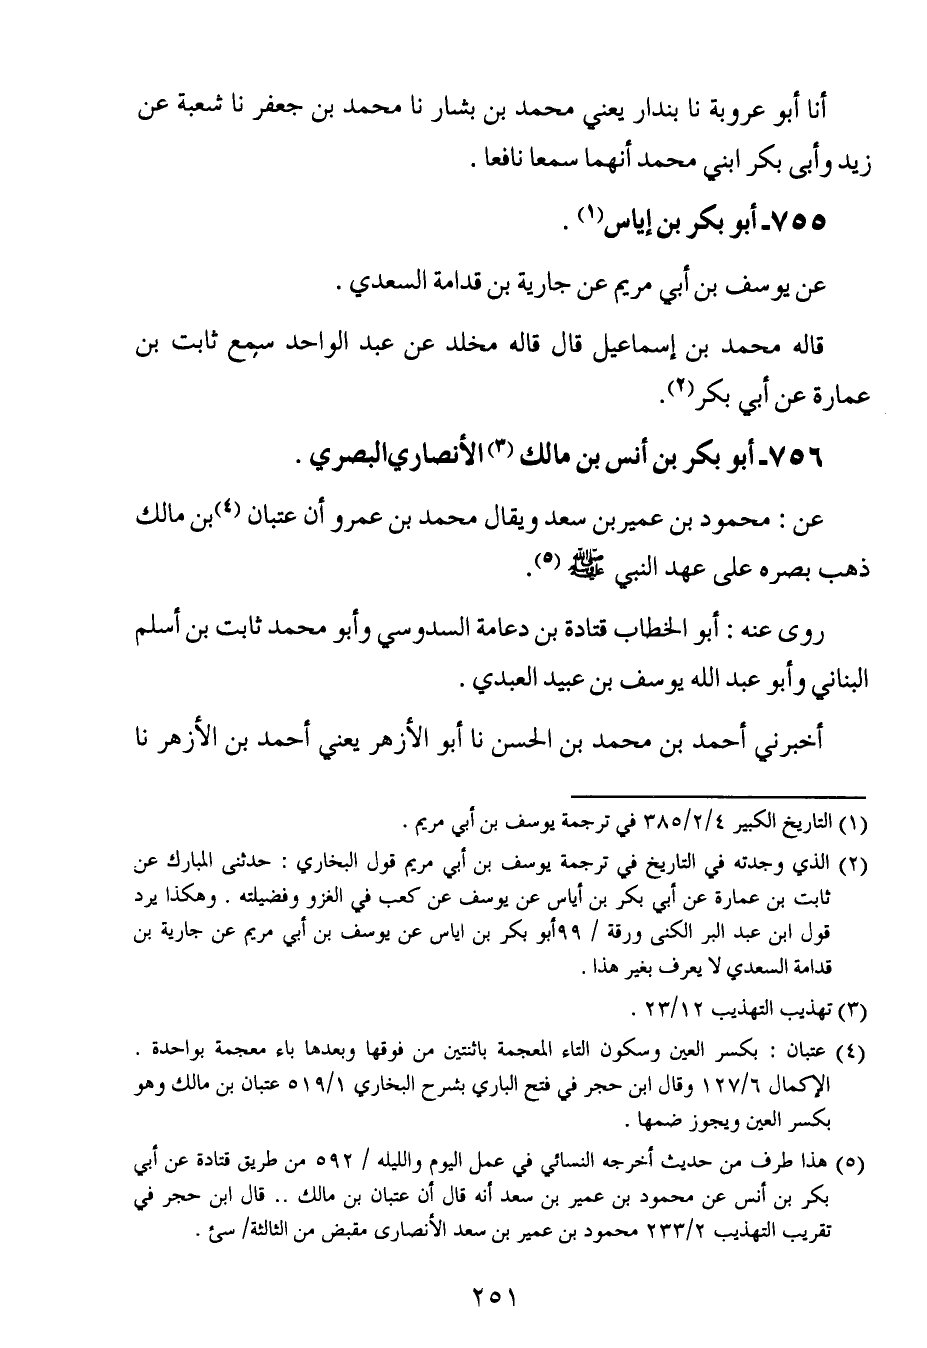 أنا أبو عروبة نا بندار يعني محمد بن بشار نا محمد بن جعفر نا شعبة عن
زيد وأبى بكر ابني محمد أنهما سمعا نافعا .
٧٥٥ـ أبو بكر بن إياس(١) .
عن يوسف بن أبي مريم عن جارية بن قدامة السعدي .
قاله محمد بن إسماعيل قال قاله مخلد عن عبد الواحد سمع ثابت بن
عمارة عن أبي بكر(٢).
٧٥٦ـ أبو بكر بن أنس بن مالك (٣) الأنصاري البصري .
عن : محمود بن عمير بن سعد ويقال محمد بن عمرو أن عتبان (٤) بن مالك
ذهب بصره على عهد النبي ﷺ (٥).
روى عنه : أبو الخطاب قتادة بن دعامة السدوسي وأبو محمد ثابت بن أسلم
البناني وأبو عبد الله يوسف بن عبيد العبدي .
أخبرني أحمد بن محمد بن الحسن نا أبو الأزهر يعني أحمد بن الأزهر نا
(١) التاريخ الكبير ٣٨٥/٢/٤ في ترجمة يوسف بن أبي مريم .
(٢) الذي وجدته في التاريخ في ترجمة يوسف بن أبي مريم قول البخاري : حدثنى المبارك عن
ثابت بن عمارة عن أبي بكر بن أياس عن يوسف عن كعب في الغزو وفضيلته . وهكذا يرد
قول ابن عبد البر الكنى ورقة / ٩٩ أبو بكر بن اياس عن يوسف بن أبي مريم عن جارية بن
قدامة السعدي لا يعرف بغير هذا .
(٣) تهذيب التهذيب ٢٣/١٢ .
(٤) عتبان : بكسر العين وسكون التاء المعجمة باثنتين من فوقها وبعدها باء معجمة بواحدة .
الإكمال ١٢٧/٦ وقال ابن حجر في فتح الباري بشرح البخاري ٥١٩/١ عتبان بن مالك وهو
بكسر العين ويجوز ضمها .
(٥) هذا طرف من حديث أخرجه النسائي في عمل اليوم والليله / ٥٩٢ من طريق قتادة عن أبي
بكر بن أنس عن محمود بن عمير بن سعد أنه قال أن عتبان بن مالك .. قال ابن حجر في
تقريب التهذيب ٢٣٣/٢ محمود بن عمير بن سعد الأنصارى مقبض من الثالثة/ سئ .
٢٥١